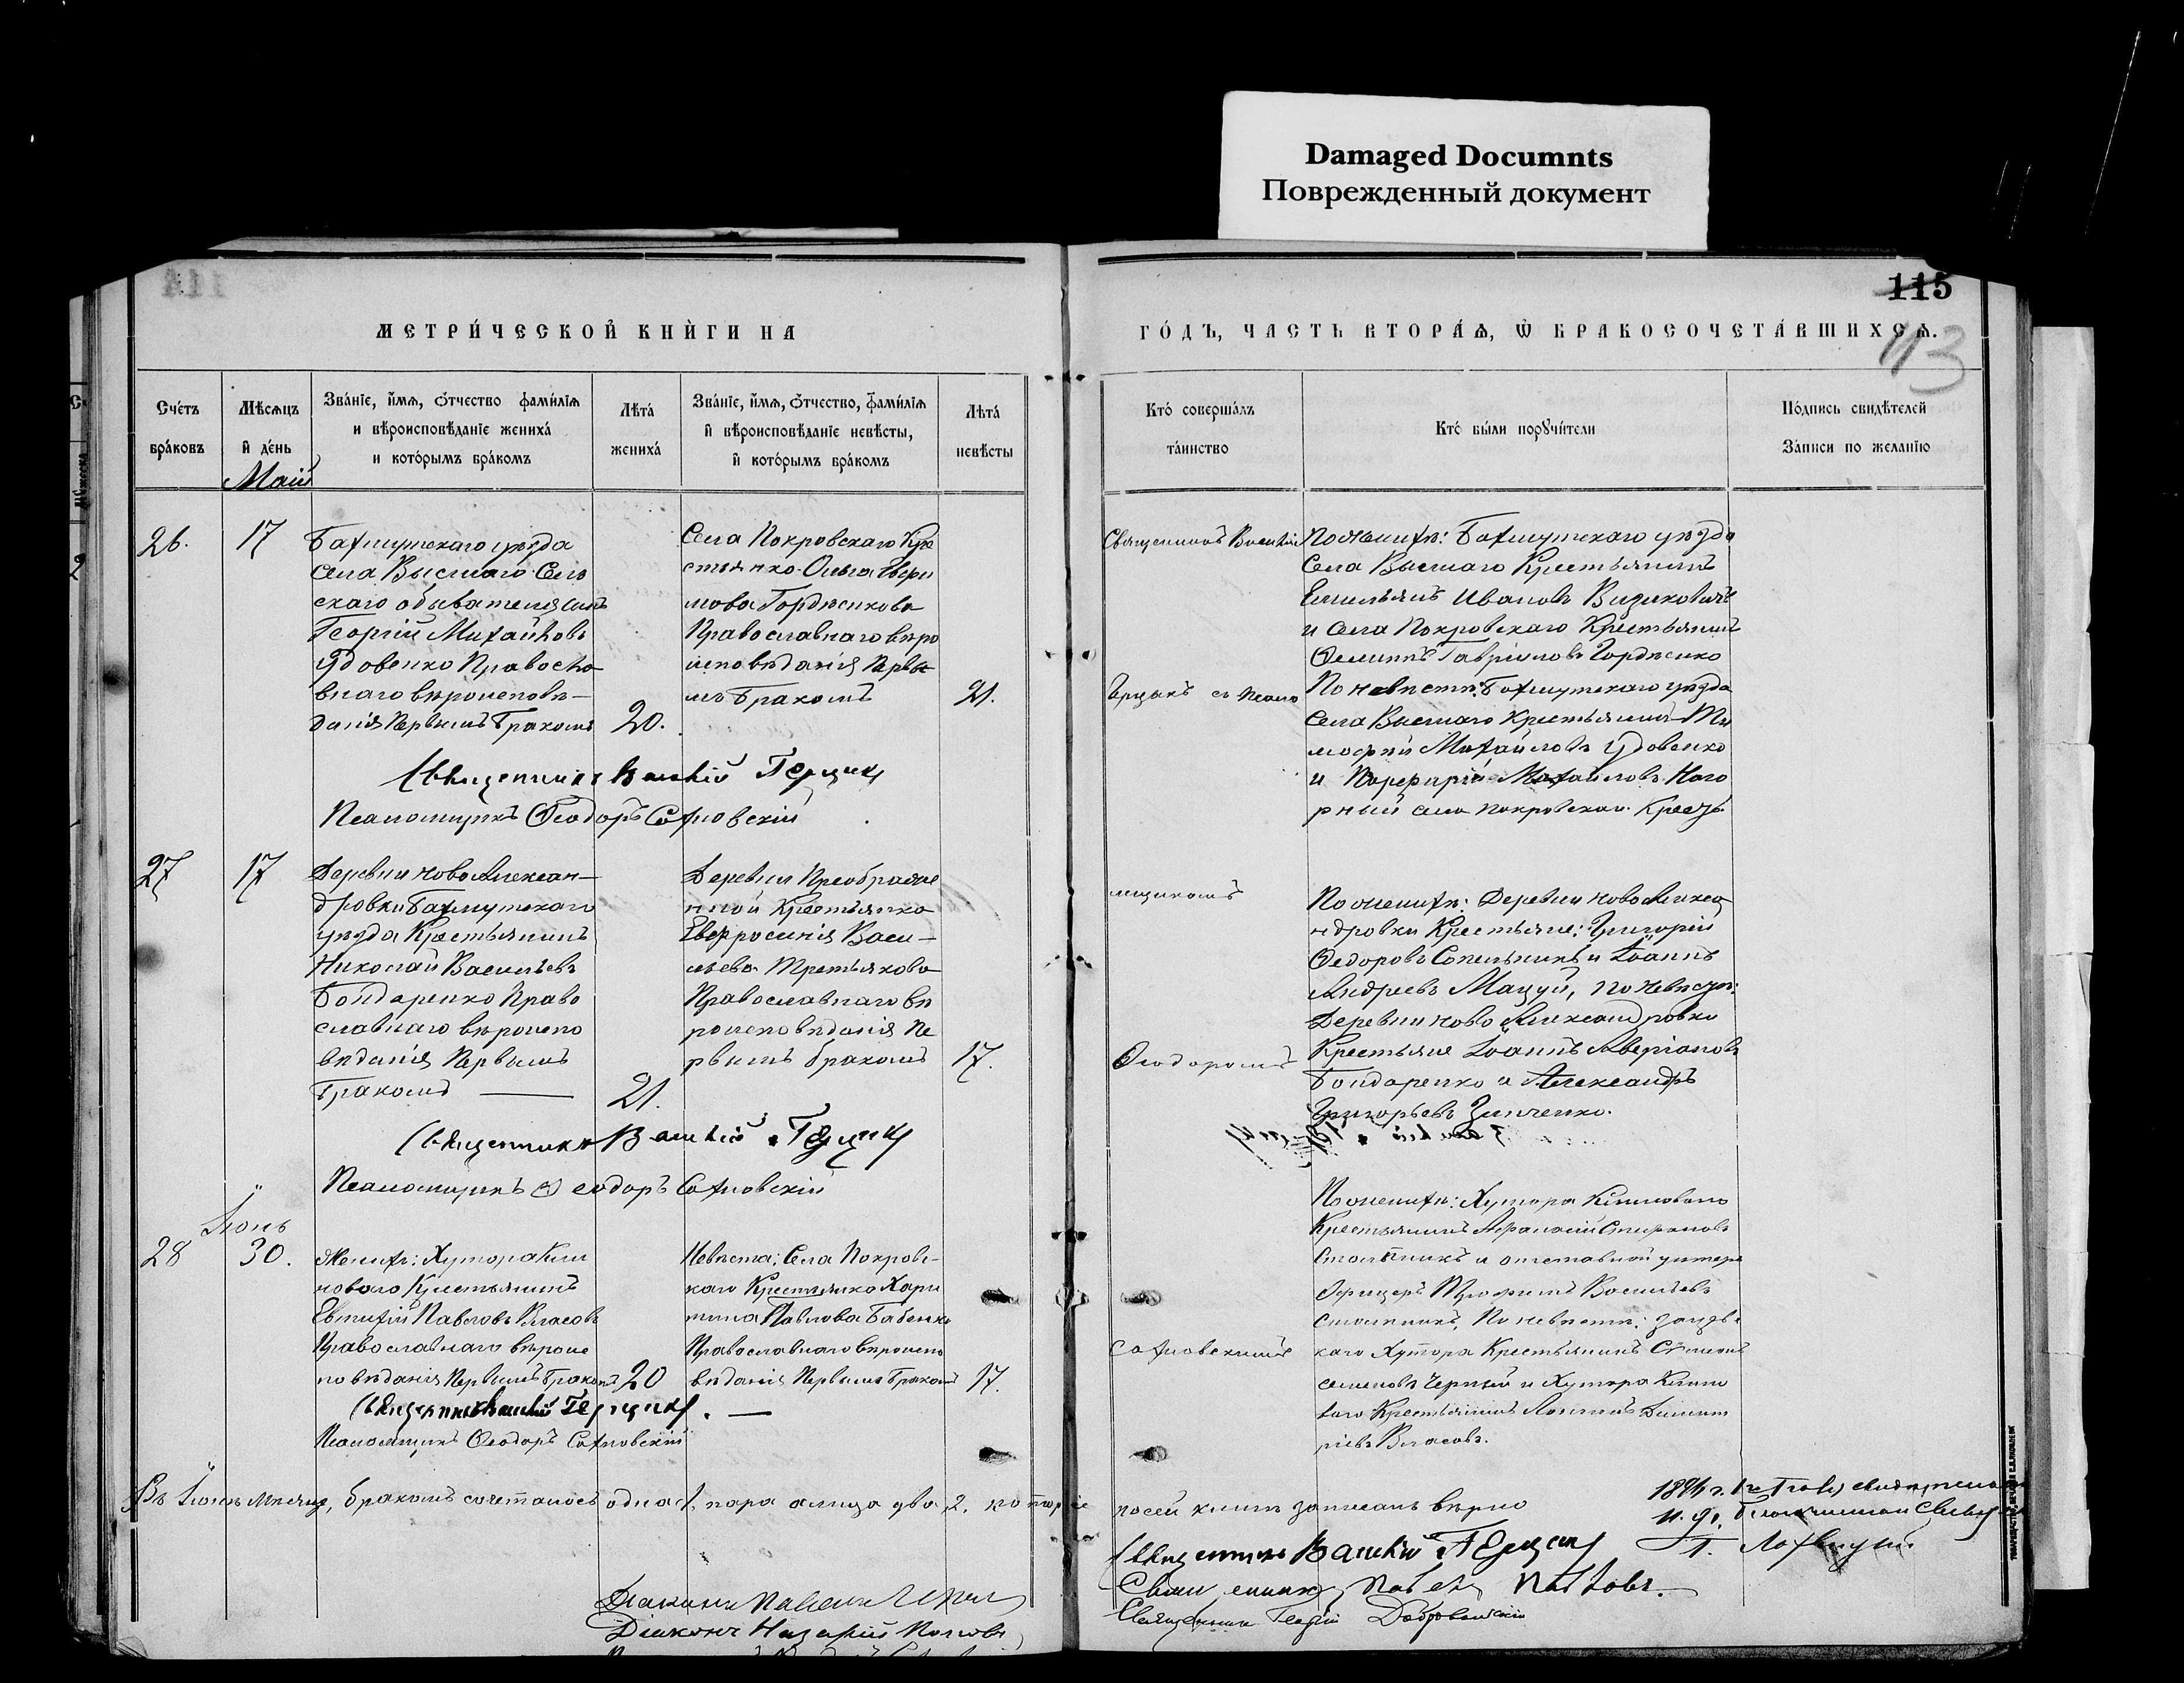 Damaged Documnts
Поврежденный документ
115
113
МЕТРИ́ЧЕСКОЙ КНИ́ГИ НА
ГО́ДЪ, ЧАСТЬ ВТОРА́Ѧ, Ѽ БРАКОСОЧЕТА́ВШИХСѦ.
Сче́тъ
бра́ковъ
Мѣсѧцъ
и҆ де́нь
Май
Зва́нїе, и҆́мѧ, о҆́тчество фами́лїѧ
и вѣроисповѣ́данїе жениха́
и кото́рымъ бра́комъ
Лѣта́
жениха́
Зва́нїе, и҆́мѧ, о҆́тчество, фами́лїѧ
и҆ вѣроисповѣ́данїе невѣ́сты,
и҆ кото́рымъ бра́комъ
Лѣта́
невѣ́сты
Кто́ соверша́лъ
та́инство
Кто́ бы́ли порꙋчи́тели
По́дпись свидѣ́телей
За́писи по жела́нїю
26.
17
Бахмутскаго уѣзда
Села Выемнаго Сель
скаго обывателя сынъ
Георгій Михайловъ
Удовенко Правосла-
внаго вѣроисповѣ-
данія Первымъ Бракомъ
20.
Села Покровскаго Кре
стьянка Ольга
мова Гордѣенкова
Православнаго вѣро
исповѣданія Первы
мъ Бракомъ
21.
Священникъ Василій
Герцыкъ съ Псало
По женихѣ: Бахмутскаго уѣзда
Села Выемнаго Крестьянинъ
Емельянъ Ивановъ
и Села Покровскаго Крестьянинъ
Гавріиловъ Гордѣенко
По невѣстѣ: Бахмутскаго уѣзда
Села Выемнаго Крестьянинъ Ти
мофѣй Михайловъ Удовенко
и Порфирій Михайловъ Наго
рный села Покровскаго
Священникъ Василій Герцыкъ
Псаломщикъ Ѳеодоръ Сахновскій
27
17
Деревни Ново Алексан-
дровки Бахмутскаго
уѣзда Крестьянинъ
Николай Васильевъ
Бондаренко Право
славнаго вѣроиспо
вѣданія Первымъ
Бракомъ
21.
Деревни Преображе
нной Крестьянка
Евфросинія Васи-
льева Третьякова
Православнаго вѣ
роисповѣданія Пе
рвымъ бракомъ
17.
мщикомъ
Ѳеодоромъ
По женихѣ: Деревни Ново Алекса
ндровки Крестьяне: Григорій
Ѳедоровъ Сопельникъ и Іоаннъ
Андреевъ Мацуй, по невѣстѣ:
Деревни Ново Александровки
Крестьяне Іоаннъ Аверіановъ
Бондаренко и Александръ
Григорьевъ Зинченко.
Священникъ Василій Герцыкъ
Псаломщикъ Ѳеодоръ Сахновскій
Іюнь
28
30.
Женихъ: Хутора Кли
новаго Крестьянинъ
Евтихій Павловъ Власовъ
Православнаго вѣроис
повѣданія Первымъ Бракомъ
20
Невѣста: Села Покров-
скаго Крестьянка Хари
тина Павлова Бабенко
Православнаго вѣроиспо
вѣданія Первымъ Бракомъ
17.
Сахновскимъ
По женихѣ: Хутора Клиноваго
Крестьянинъ Афанасій Стефановъ
и отставной унтеръ
Офицеръ Трофимъ Васильевъ
По невѣстѣ:
каго Хутора Крестьянинъ Симеонъ
Семеновъ Черный и Хутора Клино
ваго Крестьянинъ Логгинъ Димит
ріевъ Власовъ.
Священникъ Василій Герцыкъ.
Псаломщикъ Ѳеодоръ Сахновскій
Въ Іюнѣ мѣсяцѣ, бракомъ сочеталось одна 1. пара а лица два 2. которые
по сей книгѣ записаны вѣрно
Священникъ Василій Герцыкъ
Священникъ Павелъ
Священникъ Георгій
Діаконъ
Діаконъ Назарій Поповъ